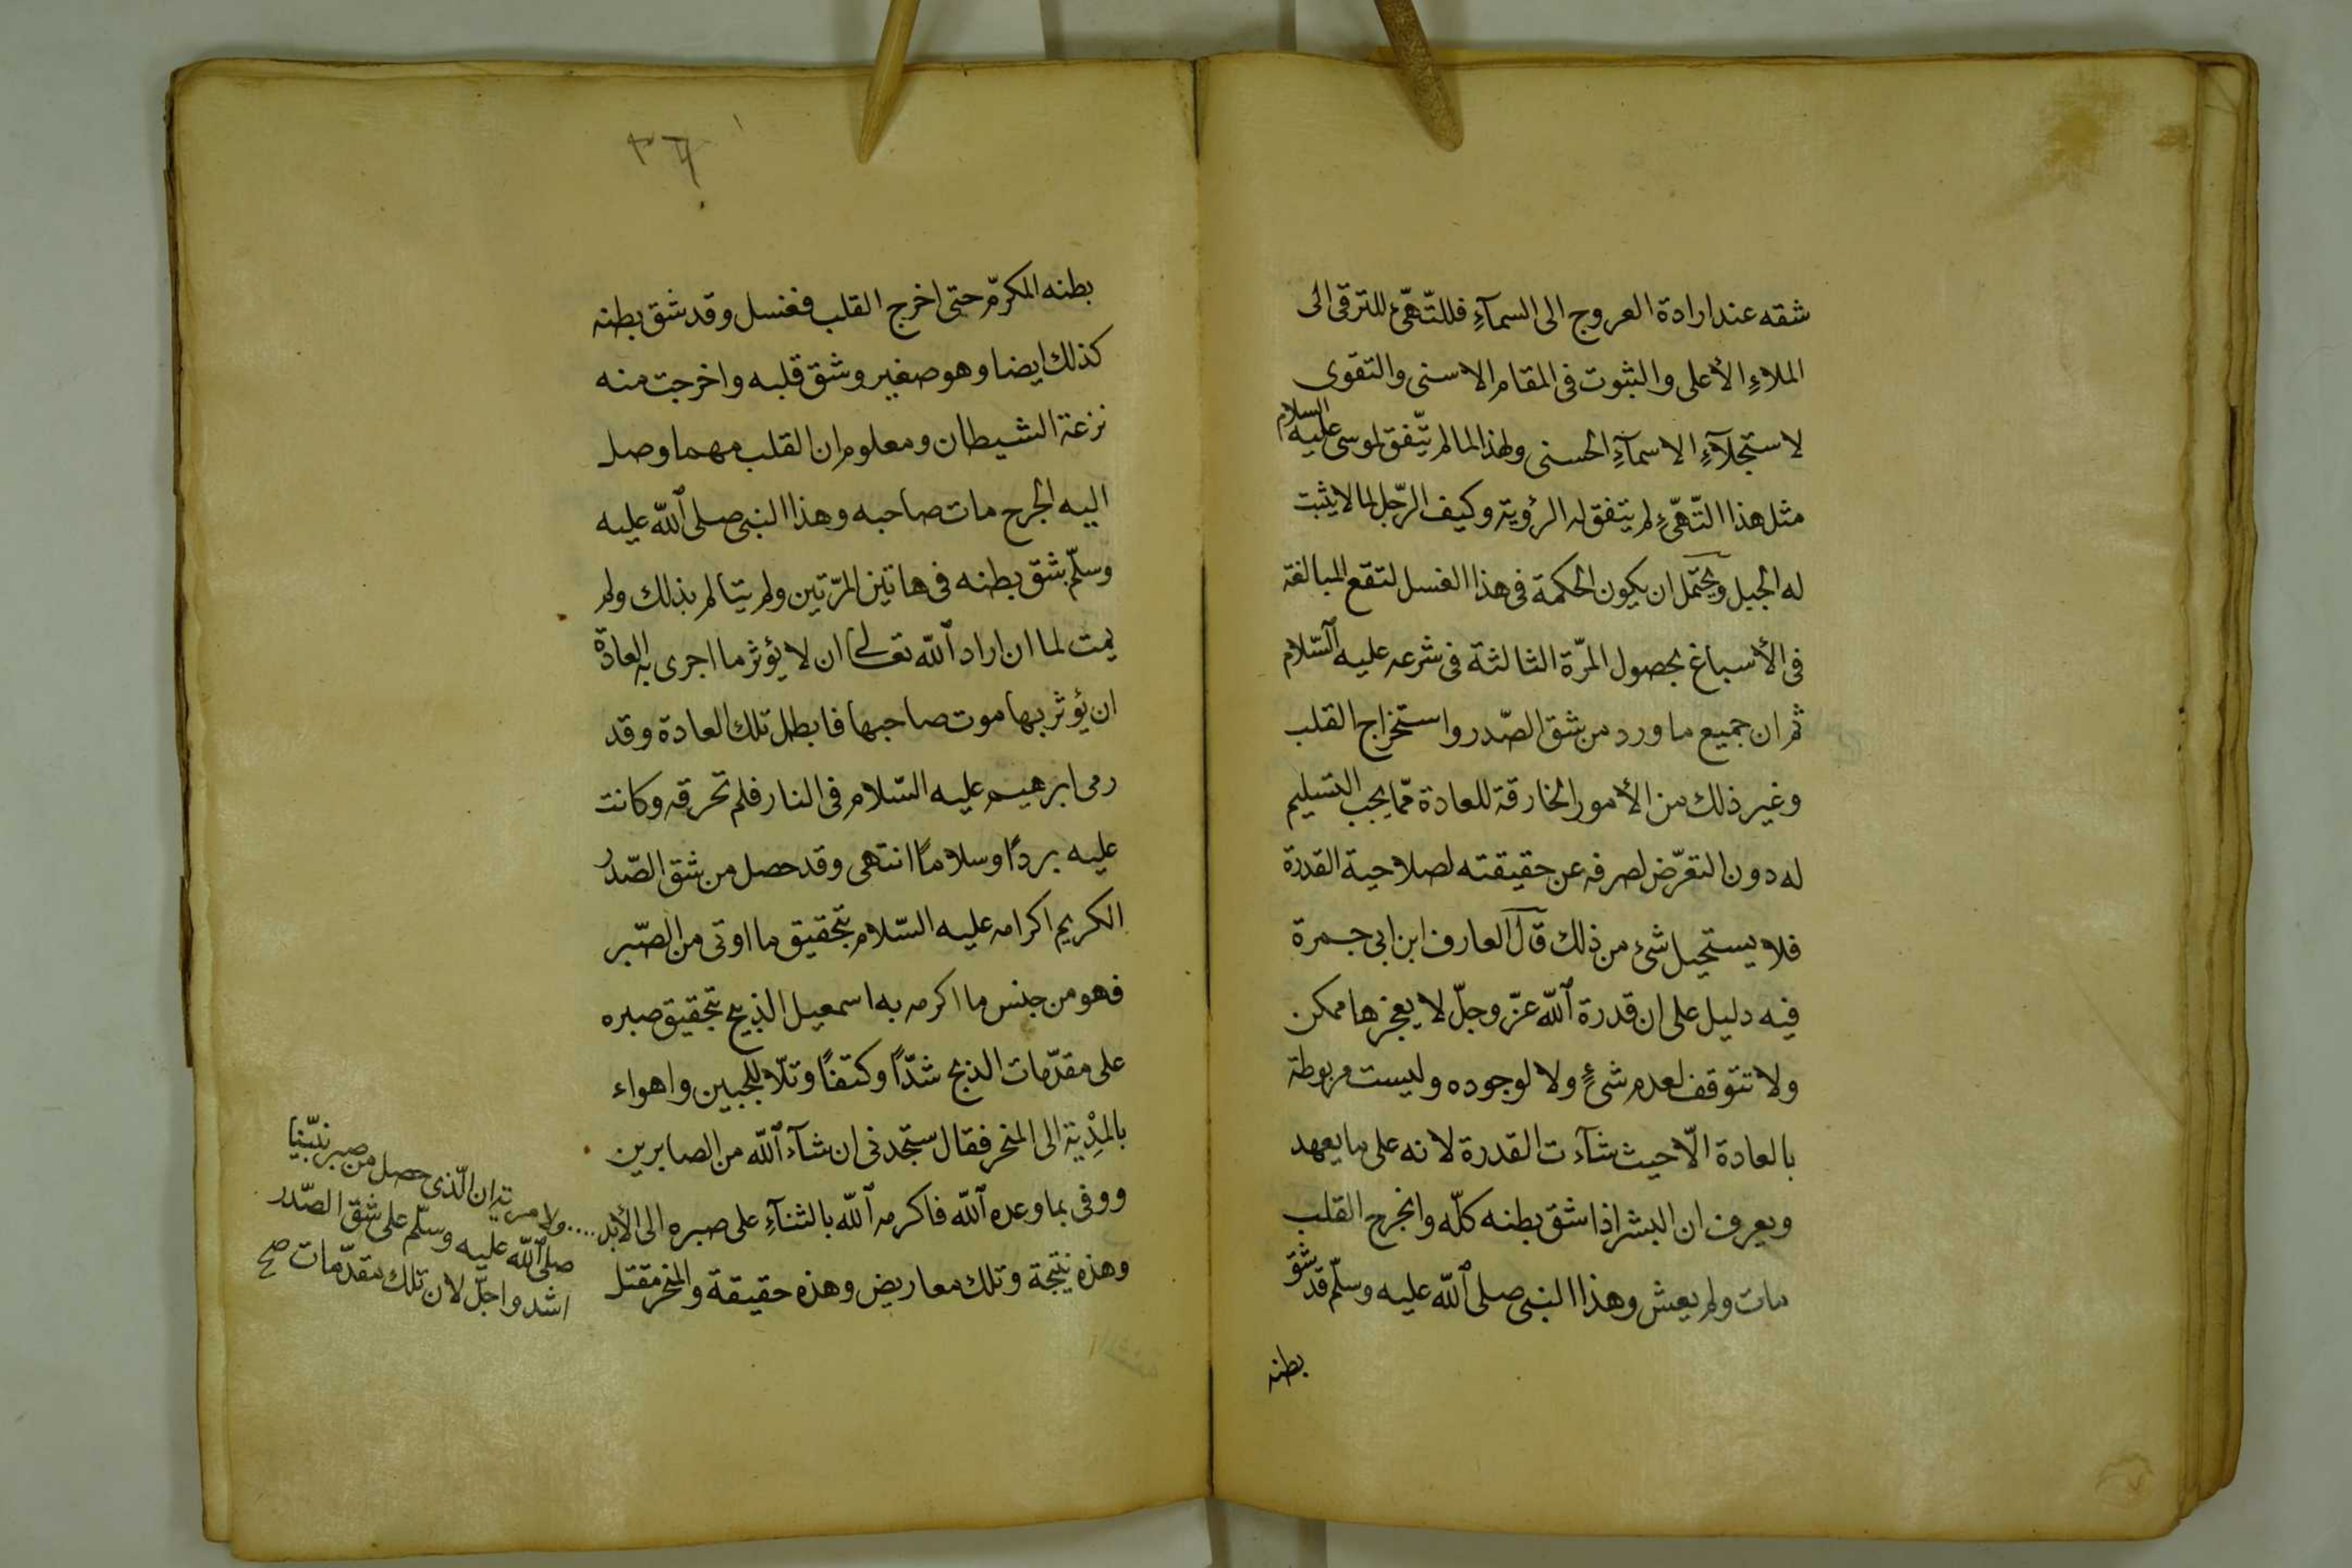 شقه عند ارادة العروج الى السمآءِ فللتّهيّئ للترقى الى
الملاءِ الأعلى والثبوت فى المقام الاسنى والتقوى
لاستجلآءِ الاسمآءِ الحسنى ولهذا لما لم يتّفق لموسى عليه السلام
مثل هذا التّهيّءِ لم يتفق له الرؤية وكيف الرّجل لما لا يثبت
له الجبل ويحتمل ان يكون الحكمة فى هذا الغسل لتقع المبالغة
فى الأسباغ بحصول المرّة الثالثة فى شرعه عليه السّلام
ثم ان جميع ما ورد من شق الصّدر واستخراج القلب
وغير ذلك من الأمور الخارقة للعادة ممّا يجب التسليم
له دون التعرّض لصرفه عن حقيقته لصلاحية القدرة
فلا يستحيل شئ من ذلك قال العارف ابن ابى جمرة
فيه دليل على ان قدرة الله عزّ وجلّ لا يعجزها ممكن
ولا تتوقف لعدم شئٍ ولا لوجوده وليست مربوطة
بالعادة الّا حيث شآءت القدرة لانه على ما يعهد
ويعرف ان البشر اذا شق بطنه كلّه وانجرح القلب
مات ولم يعش وهذا النبى صلى الله عليه وسلّم قد شق
بطنه
٣٦
بطنه المكرّم حتى اخرج القلب فغسل وقد شق بطنه
كذلك ايضا وهو صغير وشق قلبه واخرجت منه
نزغة الشيطان ومعلوم ان القلب مهما وصل
اليه الجرح مات صاحبه وهذا النبى صلى الله عليه
وسلّم شق بطنه فى هاتين المرّتين ولم يتالم بذلك ولم
يمت لما ان اراد الله تعالى ان لا يؤثر ما اجرى به العادة
ان يؤثر بها موت صاحبها فابطل تلك العادة وقد
رمى ابرهيم عليه السّلام فى النار فلم تحرقه وكانت
عليه بردًا وسلامًا انتهى وقد حصل من شق الصّدر
الكريم اكرامه عليه السّلام بتحقيق ما اوتى من الصّبر
فهو من جنس ما اكرم به اسمعيل الذبيح بتحقيق صبره
على مقدّمات الذبح شدّا وكتفًا وتلّا للجبين واهواء
بالمِدْية الى المنحر فقال ستجدنى ان شآء الله من الصابرين
ووفى بما وعده الله فاكرمه الله بالثنآءِ على صبره الى الأبد
وهذه نتيجة وتلك معاريض وهذه حقيقة والمنحر مقتل
ولا مرية ان الّذى حصل من صبر نبيّنا
صلى الله عليه وسلّم على شق الصّدر
اشد واجلّ لان تلك مقدّمات صح